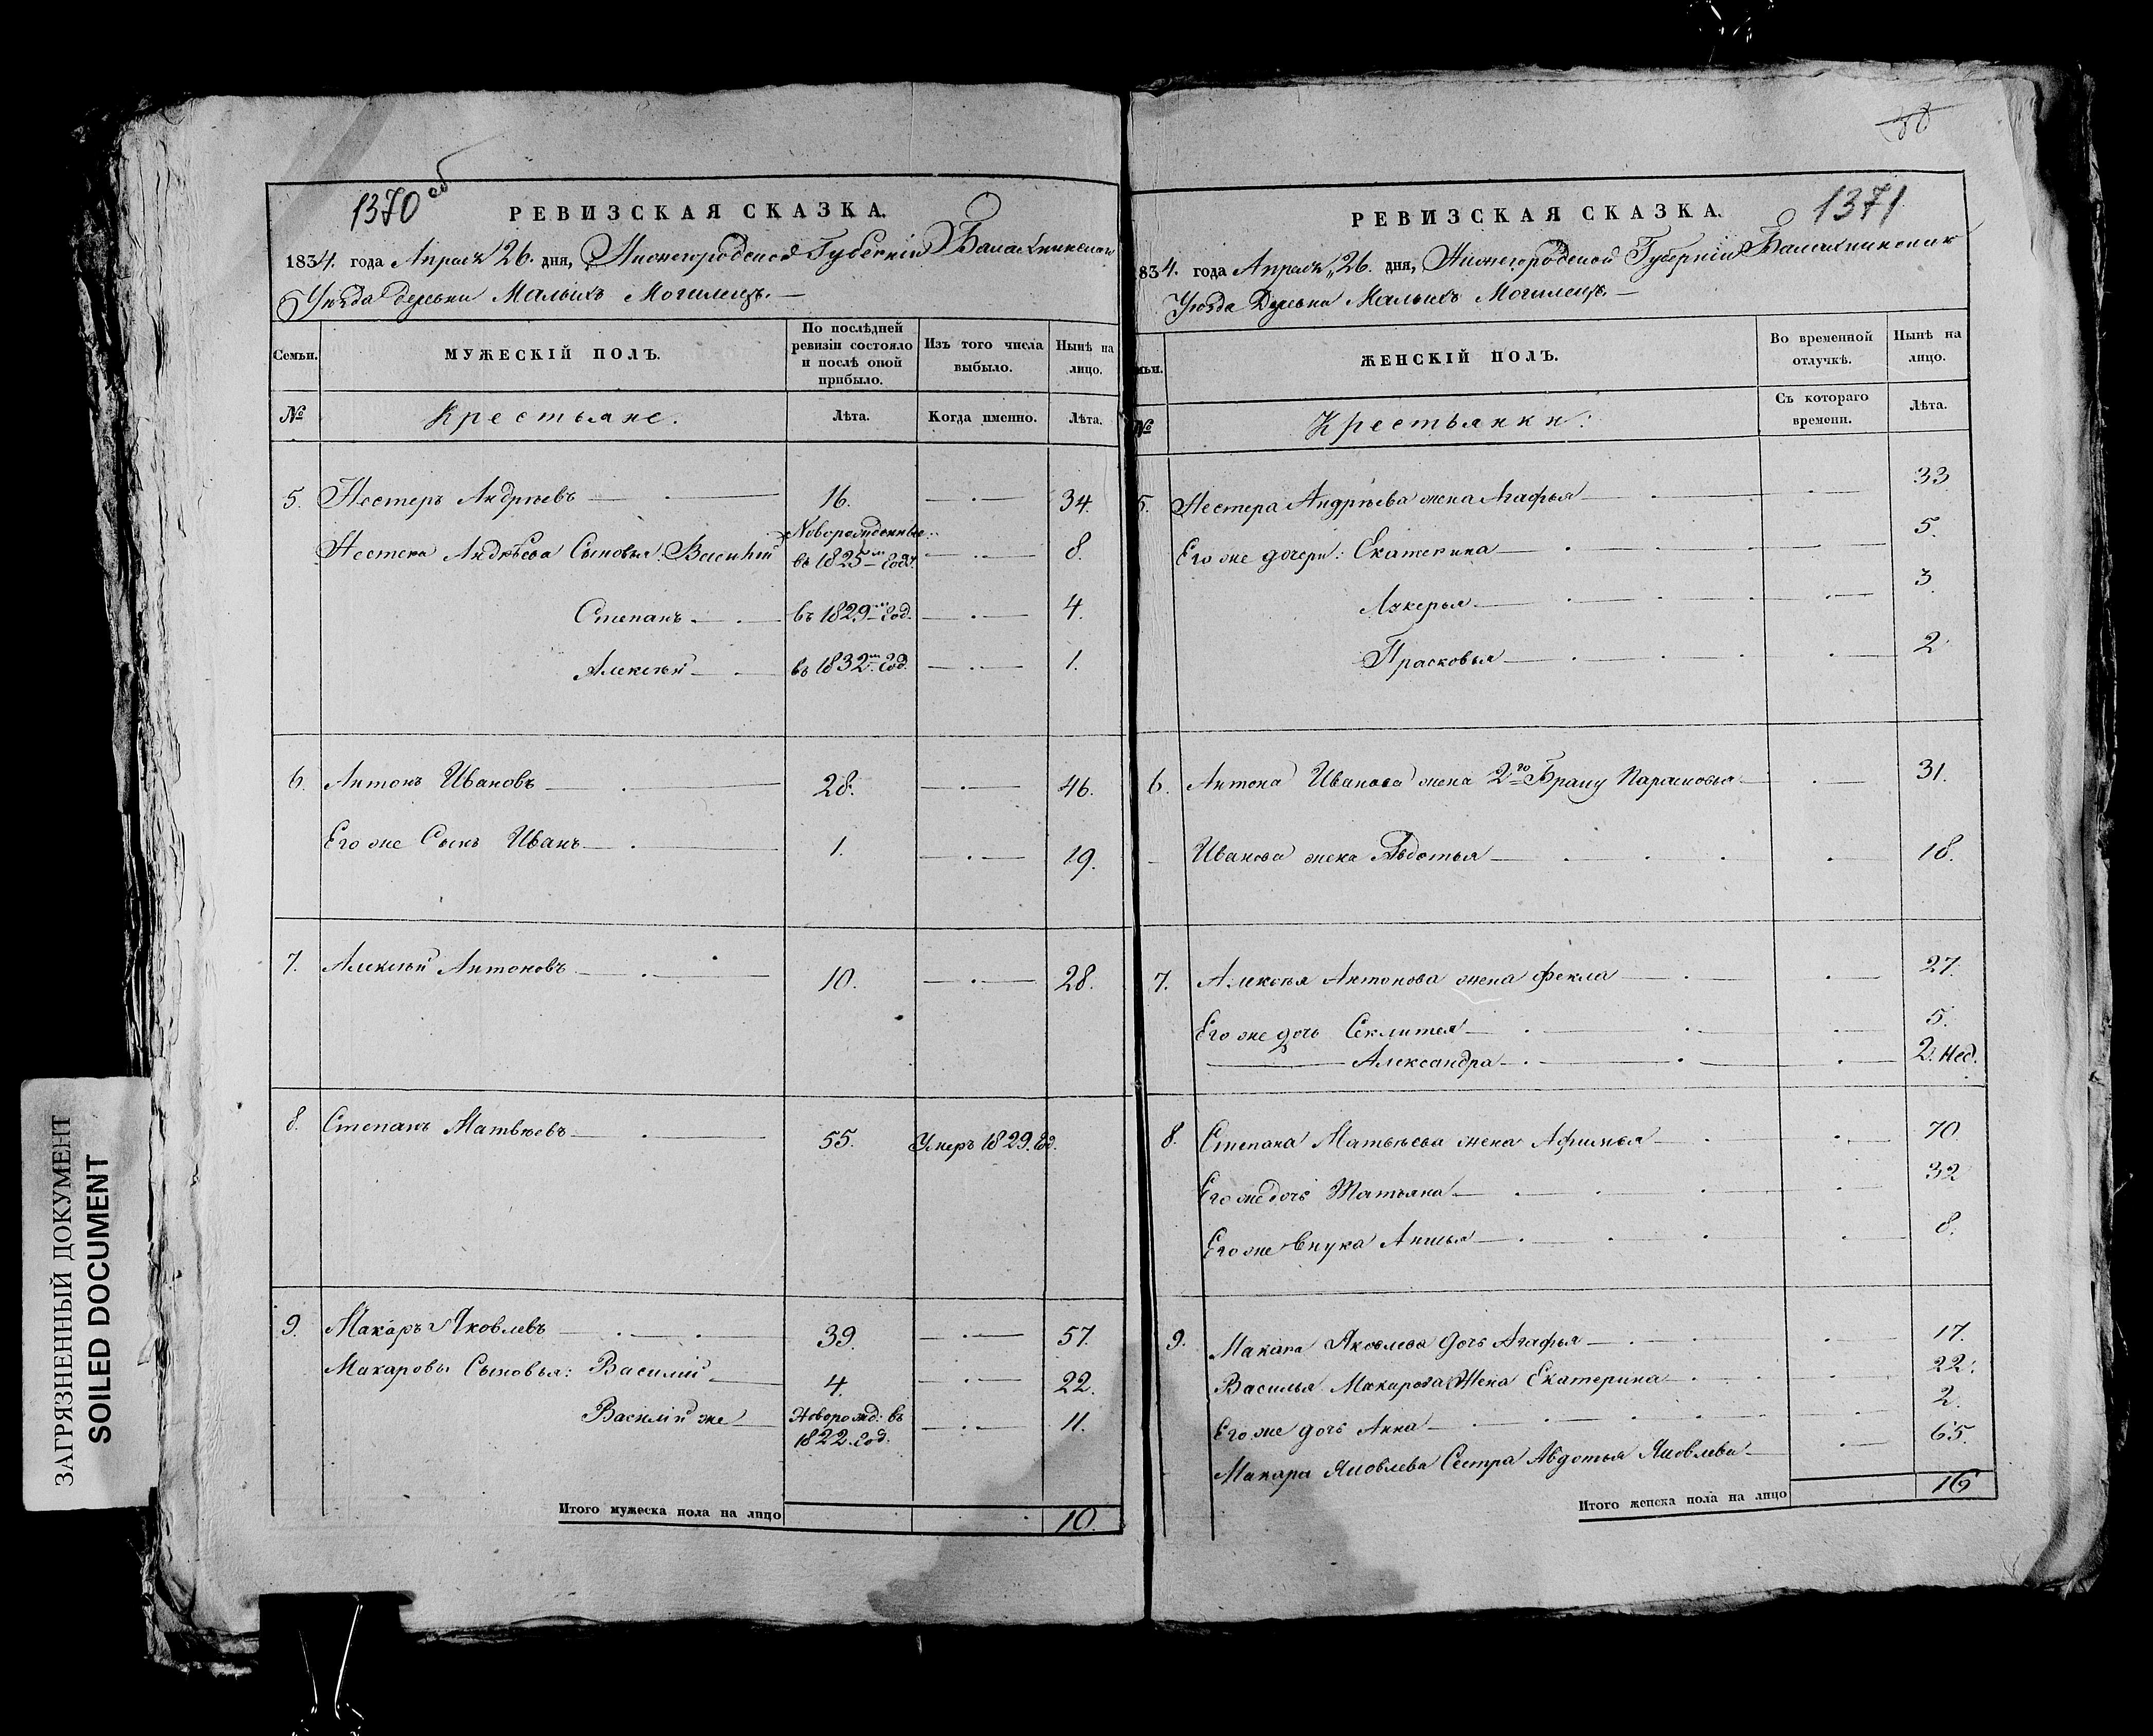 38
1370 об
РЕВИЗСКАЯ СКАЗКА.
1834. года Апреля 26. дня, Нижегородской Губерніи Балахнинскаго
Уѣзда деревни Малыхъ Могилецъ.
Семьи.
МУЖЕСКІЙ ПОЛЪ.
По послѣдней ревизіи состояло и послѣ оной прибыло.
Изъ того числа выбыло.
Нынѣ на лицо.
№
Крестьяне.
Лѣта.
Когда именно.
Лѣта.
5. Нестеръ Андреевъ 16. 34.
Нестера Андрѣева Сыновья: Василій Новорожденные: въ 1825м годѣ. 8.
Степанъ въ 1829м год. 4.
Алексѣй въ 1832м год. 1.
6. Антонъ Ивановъ 28. 46.
Его же Сынъ Иванъ 1. 19.
7. Алексѣй Антоновъ 10. 28.
8. Степанъ Матвѣевъ 55. Умеръ 1829. год.
9. Макаръ Яковлевъ 39. 57.
Макаровы Сыновья: Василій 4. 22.
Василій же Новорожд: въ 1822. год. 11.
Итого мужеска пола на лицо 10.
1371
РЕВИЗСКАЯ СКАЗКА.
834. года Апреля 26. дня, Нижегородской Губерніи Балахнинскаго
Уѣзда Деревни Малыхъ Могилецъ.
мьи.
ЖЕНСКІЙ ПОЛЪ.
Во временной отлучкѣ.
Нынѣ на лицо.
№
Крестьянки:
Съ котораго времени.
Лѣта.
5. Нестера Андрѣева жена Агафья 33
Его же дочери: Екатерина 5.
Лукерья 3.
Прасковья 2
6. Антона Иванова жена 2го браку Парасковья 31.
Иванова жена Авдотья 18.
7. Алексѣя Антонова жена Фекла 27.
Его же дочь Секлитея 5.
Александра 2. Нед.
8. Степана Матвѣева жена Афимья 70.
Его же дочь Татьяна 32
Его же внука Анисья 8.
9. Макара Яковлева дочь Агафья 17.
Василья Макарова Жена Екатерина 22:
Его же дочь Анна 2.
Макара Яковлева Сестра Авдотья Яковлева 65.
Итого женска пола на лицо 16
ЗАГРЯЗНЕННЫЙ ДОКУМЕНТ
SOILED DOCUMENT